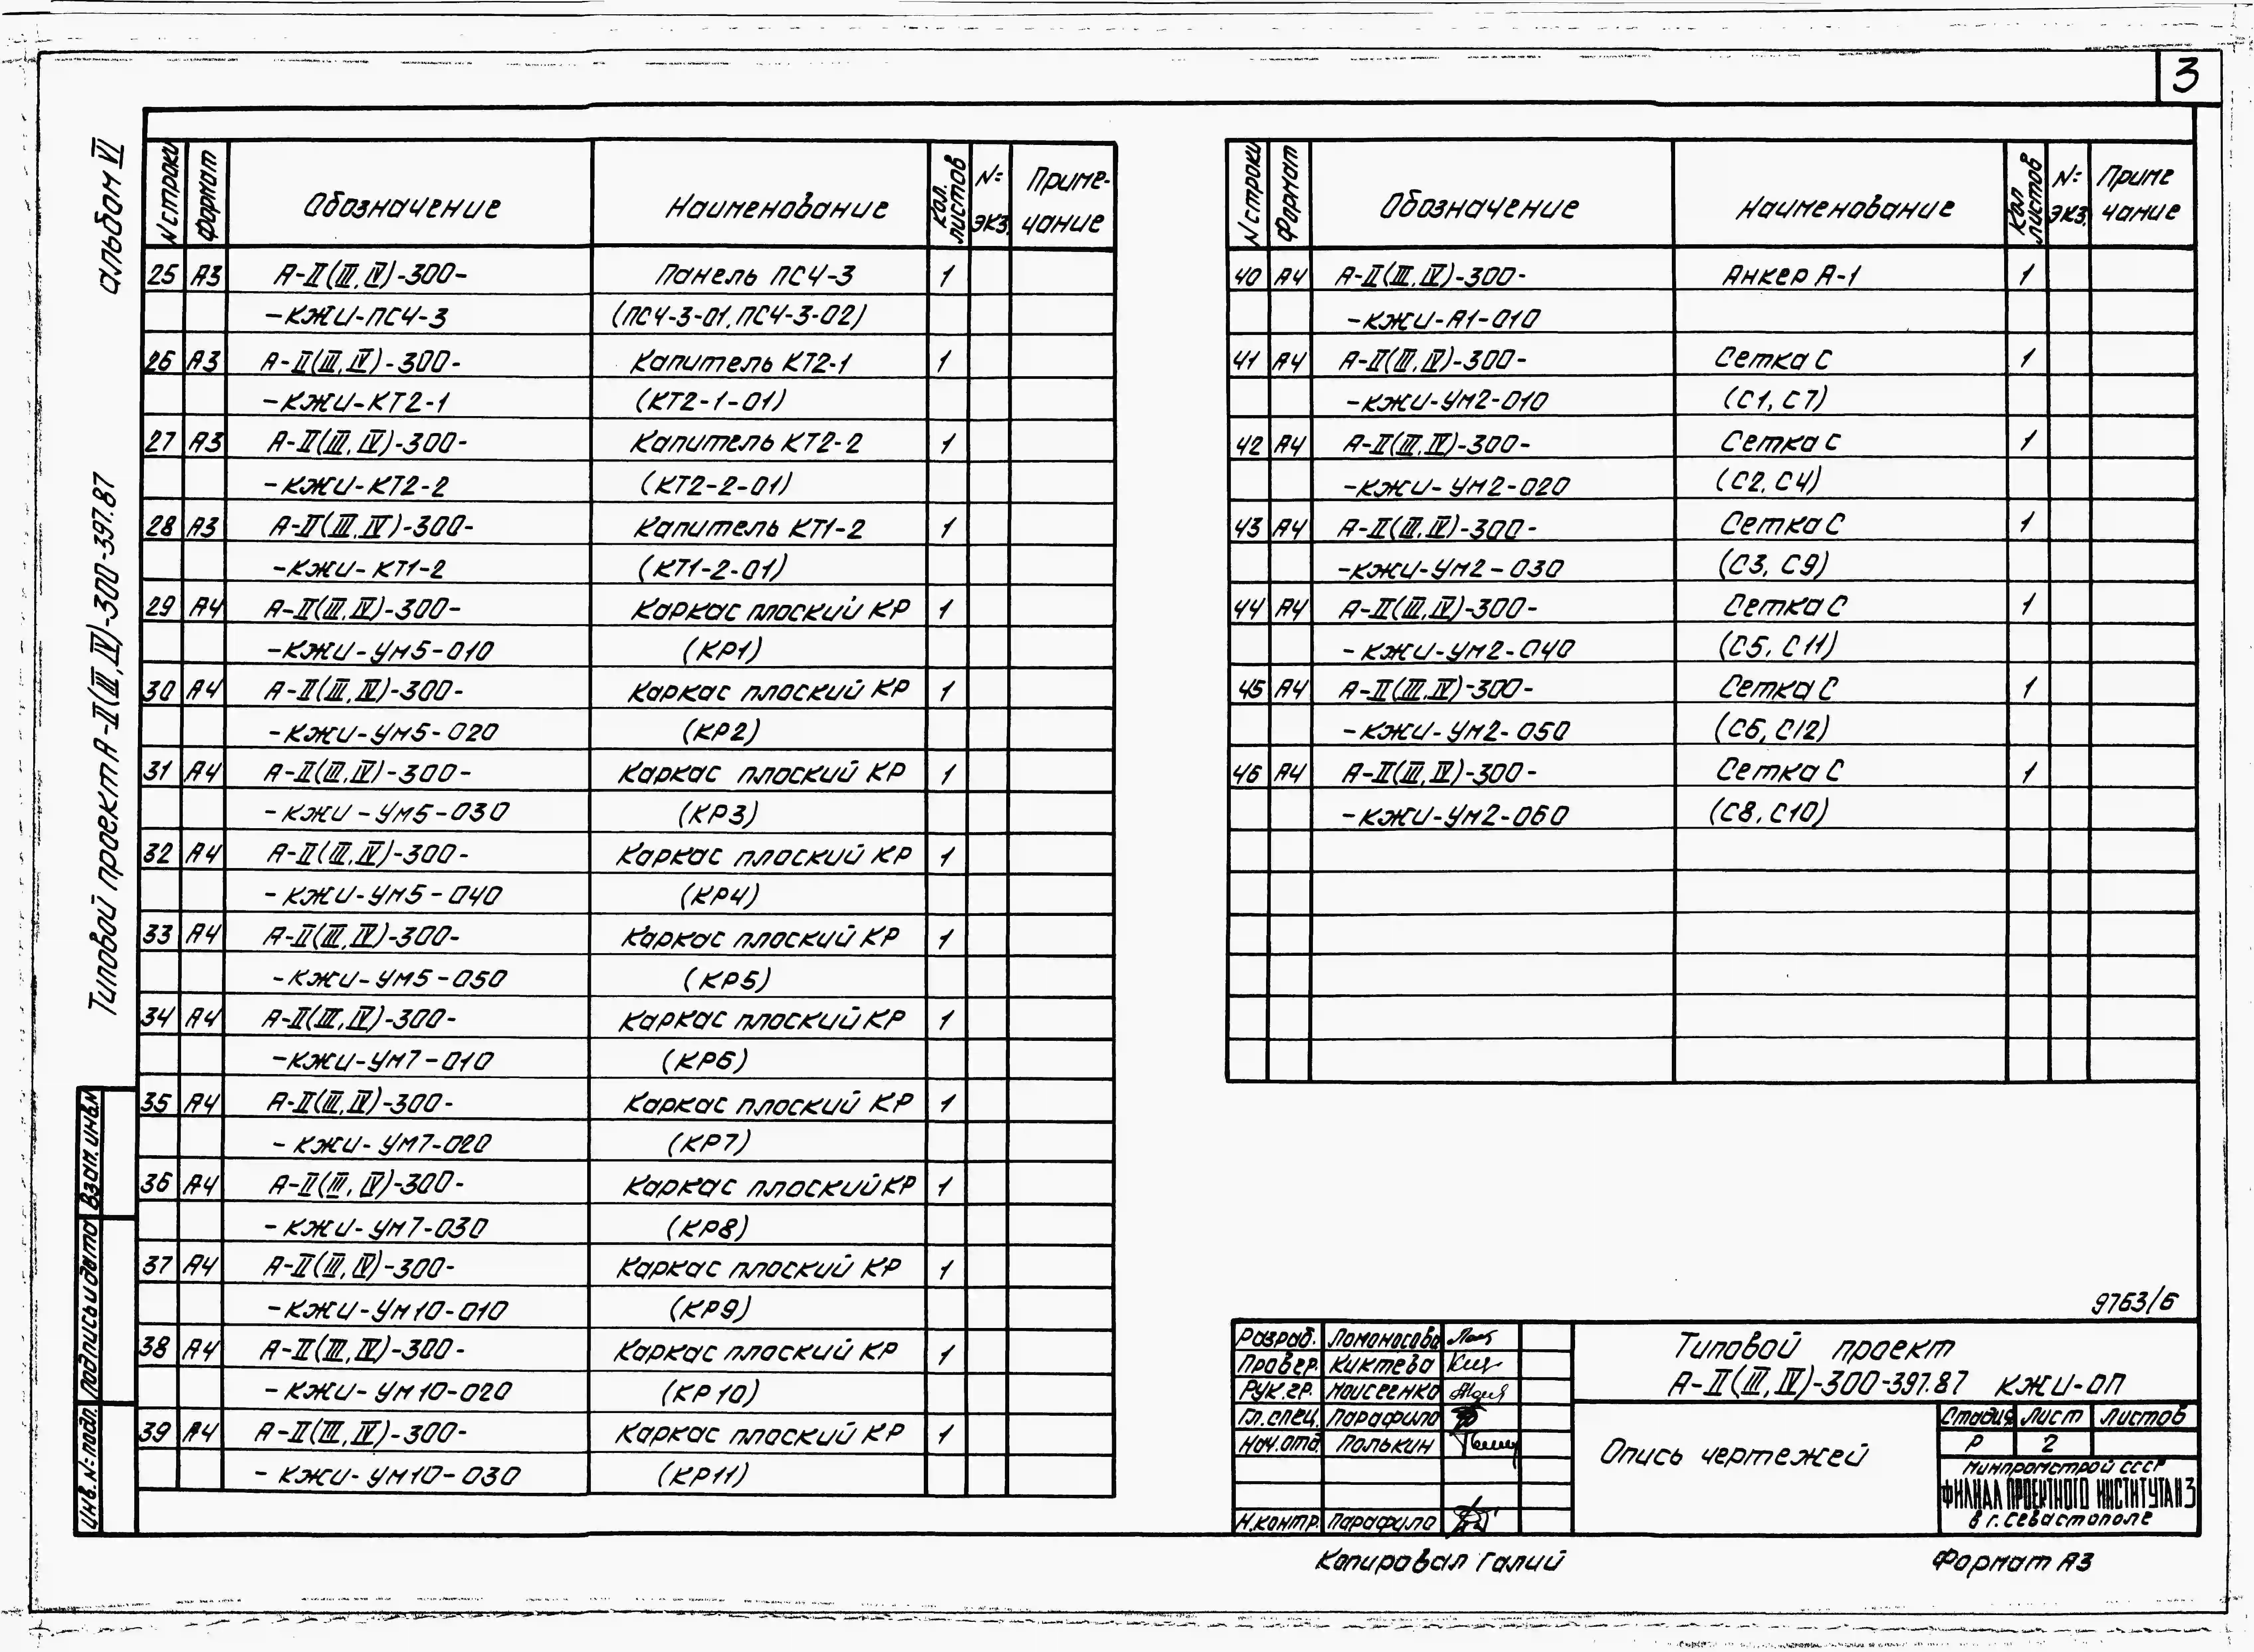 3
альбом VI
Типовой проект А-II(III,IV)-300-397.87
N строки Формат Обозначение Наименование Кол. листов №: экз. Приме-чание
25 А3 А-II(III,IV)-300- Панель ПС4-3 1
-КЖИ-ПС4-3 (ПС4-3-01, ПС4-3-02)
26 А3 А-II(III,IV)-300- Капитель КТ2-1 1
-КЖИ-КТ2-1 (КТ2-1-01)
27 А3 А-II(III,IV)-300- Капитель КТ2-2 1
-КЖИ-КТ2-2 (КТ2-2-01)
28 А3 А-II(III,IV)-300- Капитель КТ1-2 1
-КЖИ-КТ1-2 (КТ1-2-01)
29 А4 А-II(III,IV)-300- Каркас плоский КР 1
-КЖИ-УМ5-010 (КР1)
30 А4 А-II(III,IV)-300- Каркас плоский КР 1
-КЖИ-УМ5-020 (КР2)
31 А4 А-II(III,IV)-300- Каркас плоский КР 1
-КЖИ-УМ5-030 (КР3)
32 А4 А-II(III,IV)-300- Каркас плоский КР 1
-КЖИ-УМ5-040 (КР4)
33 А4 А-II(III,IV)-300- Каркас плоский КР 1
-КЖИ-УМ5-050 (КР5)
34 А4 А-II(III,IV)-300- Каркас плоский КР 1
-КЖИ-УМ7-010 (КР6)
35 А4 А-II(III,IV)-300- Каркас плоский КР 1
-КЖИ-УМ7-020 (КР7)
36 А4 А-II(III,IV)-300- Каркас плоский КР 1
-КЖИ-УМ7-030 (КР8)
37 А4 А-II(III,IV)-300- Каркас плоский КР 1
-КЖИ-УМ10-010 (КР9)
38 А4 А-II(III,IV)-300- Каркас плоский КР 1
-КЖИ-УМ10-020 (КР10)
39 А4 А-II(III,IV)-300- Каркас плоский КР 1
-КЖИ-УМ10-030 (КР11)
N строки Формат Обозначение Наименование Кол листов №: экз. Приме чание
40 А4 А-II(III,IV)-300- Анкер А-1 1
-КЖИ-А1-010
41 А4 А-II(III,IV)-300- Сетка С 1
-КЖИ-УМ2-010 (С1, С7)
42 А4 А-II(III,IV)-300- Сетка С 1
-КЖИ-УМ2-020 (С2, С4)
43 А4 А-II(III,IV)-300- Сетка С 1
-КЖИ-УМ2-030 (С3, С9)
44 А4 А-II(III,IV)-300- Сетка С 1
-КЖИ-УМ2-040 (С5, С11)
45 А4 А-II(III,IV)-300- Сетка С 1
-КЖИ-УМ2-050 (С6, С12)
46 А4 А-II(III,IV)-300- Сетка С 1
-КЖИ-УМ2-060 (С8, С10)
Взам. инв.N
Подпись и дата
Инв. №: подл.
9763/6
Разраб. Ломоносова
Провер. Киктева
Рук.гр. Моисеенко
Гл.спец. Парафило
Нач.отд. Полькин
Н.контр. Парафило
Типовой проект
А-II(III,IV)-300-397.87 КЖИ-ОП
Опись чертежей
Стадия Лист Листов
Р 2
Минпромстрой СССР
ФИЛИАЛ ПРОЕКТНОГО ИНСТИТУТА N3
в г. Севастополе
Копировал Галий
Формат А3